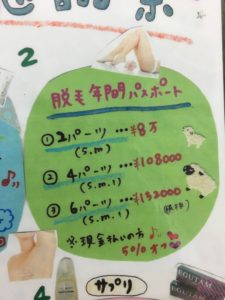 2
脱毛年間パスポート
① 2パーツ…¥8万
(S.M)
② 4パーツ…¥108000
(S.M.l)
③ 6パーツ…¥132000
(S.M.l)
(税抜)
※現金払いの方
50%オフ
4
サプリ
EGUTAM